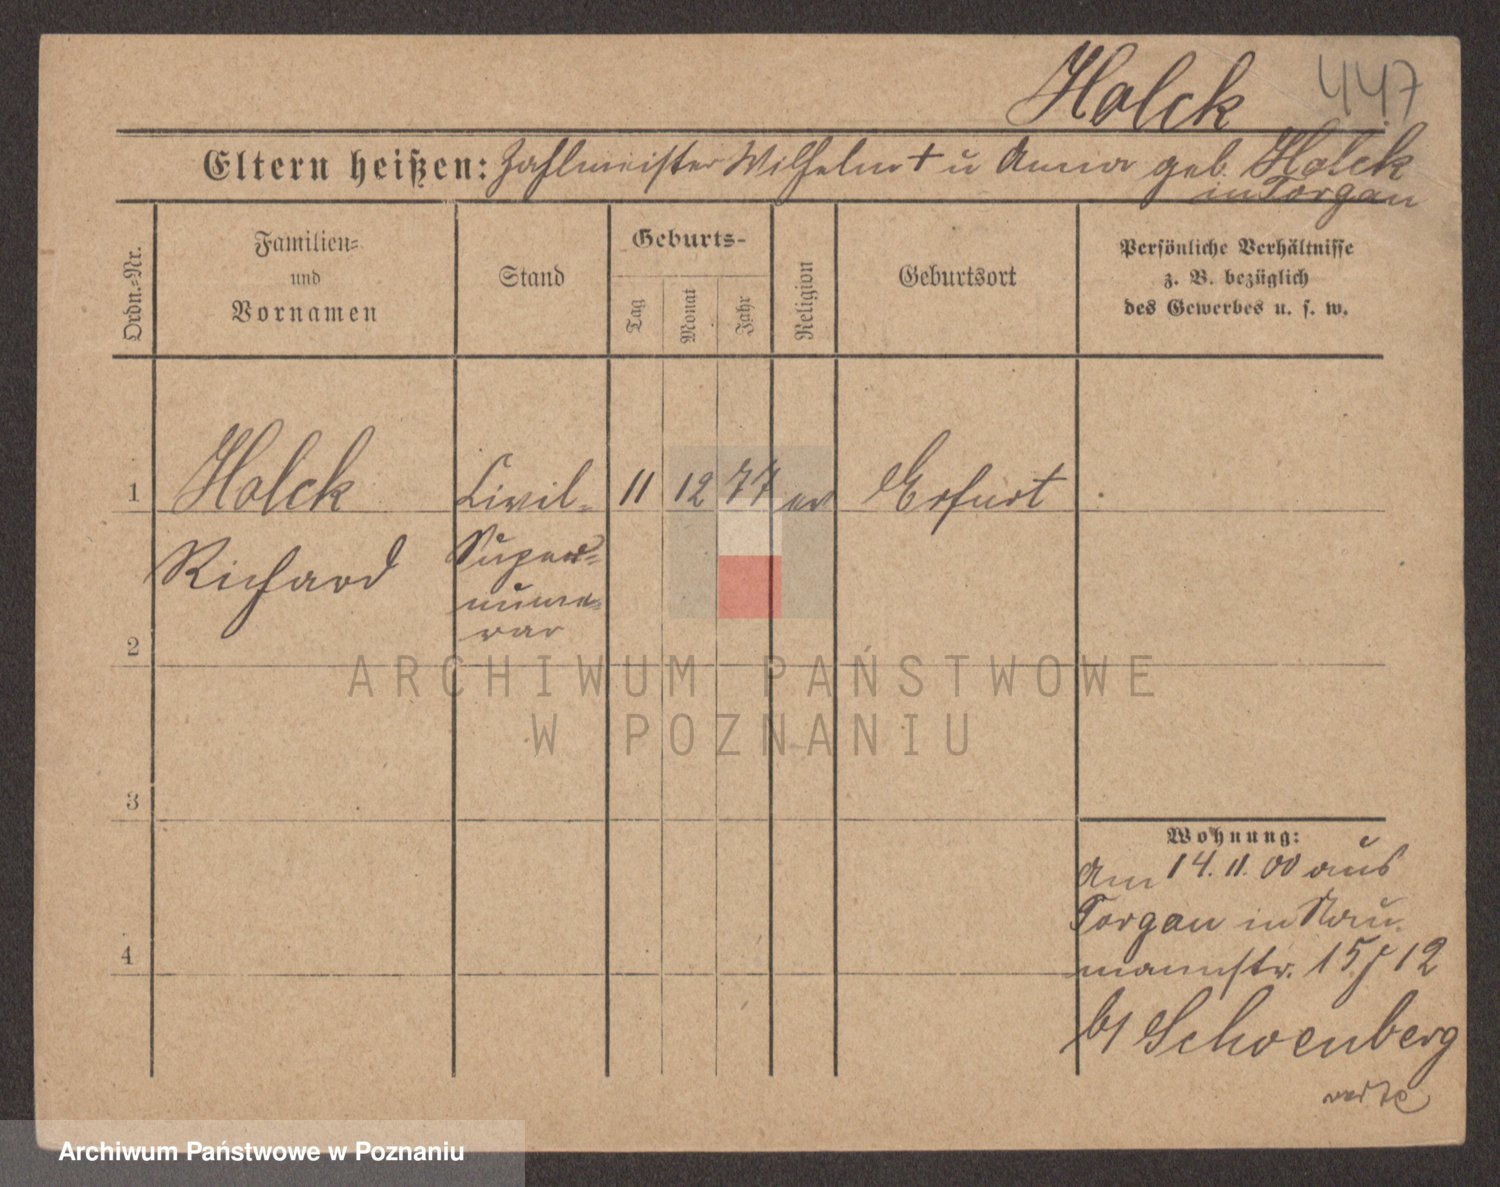 Holck 447
Eltern heißen: Zahlmeister Wilhelm † u Anna geb. Holck
in Torgau
Ordn.-Nr.
Familien-
und
Vornamen
Stand
Geburts-
Tag
Monat
Jahr
Religion
Geburtsort
Persönliche Verhältnisse
z. B. bezüglich
des Gewerbes u. s. w.
1 Holck Civil- 11 12 77 ev Erfurt
Richard Super-
nume-
rar
2
ARCHIWUM PAŃSTWOWE
W POZNANIU
3
Wohnung:
Am 14. 11. 00 aus
Torgau in Nau-
4
mannstr. 15 / 12
b/ Schoenberg
Archiwum Państwowe w Poznaniu